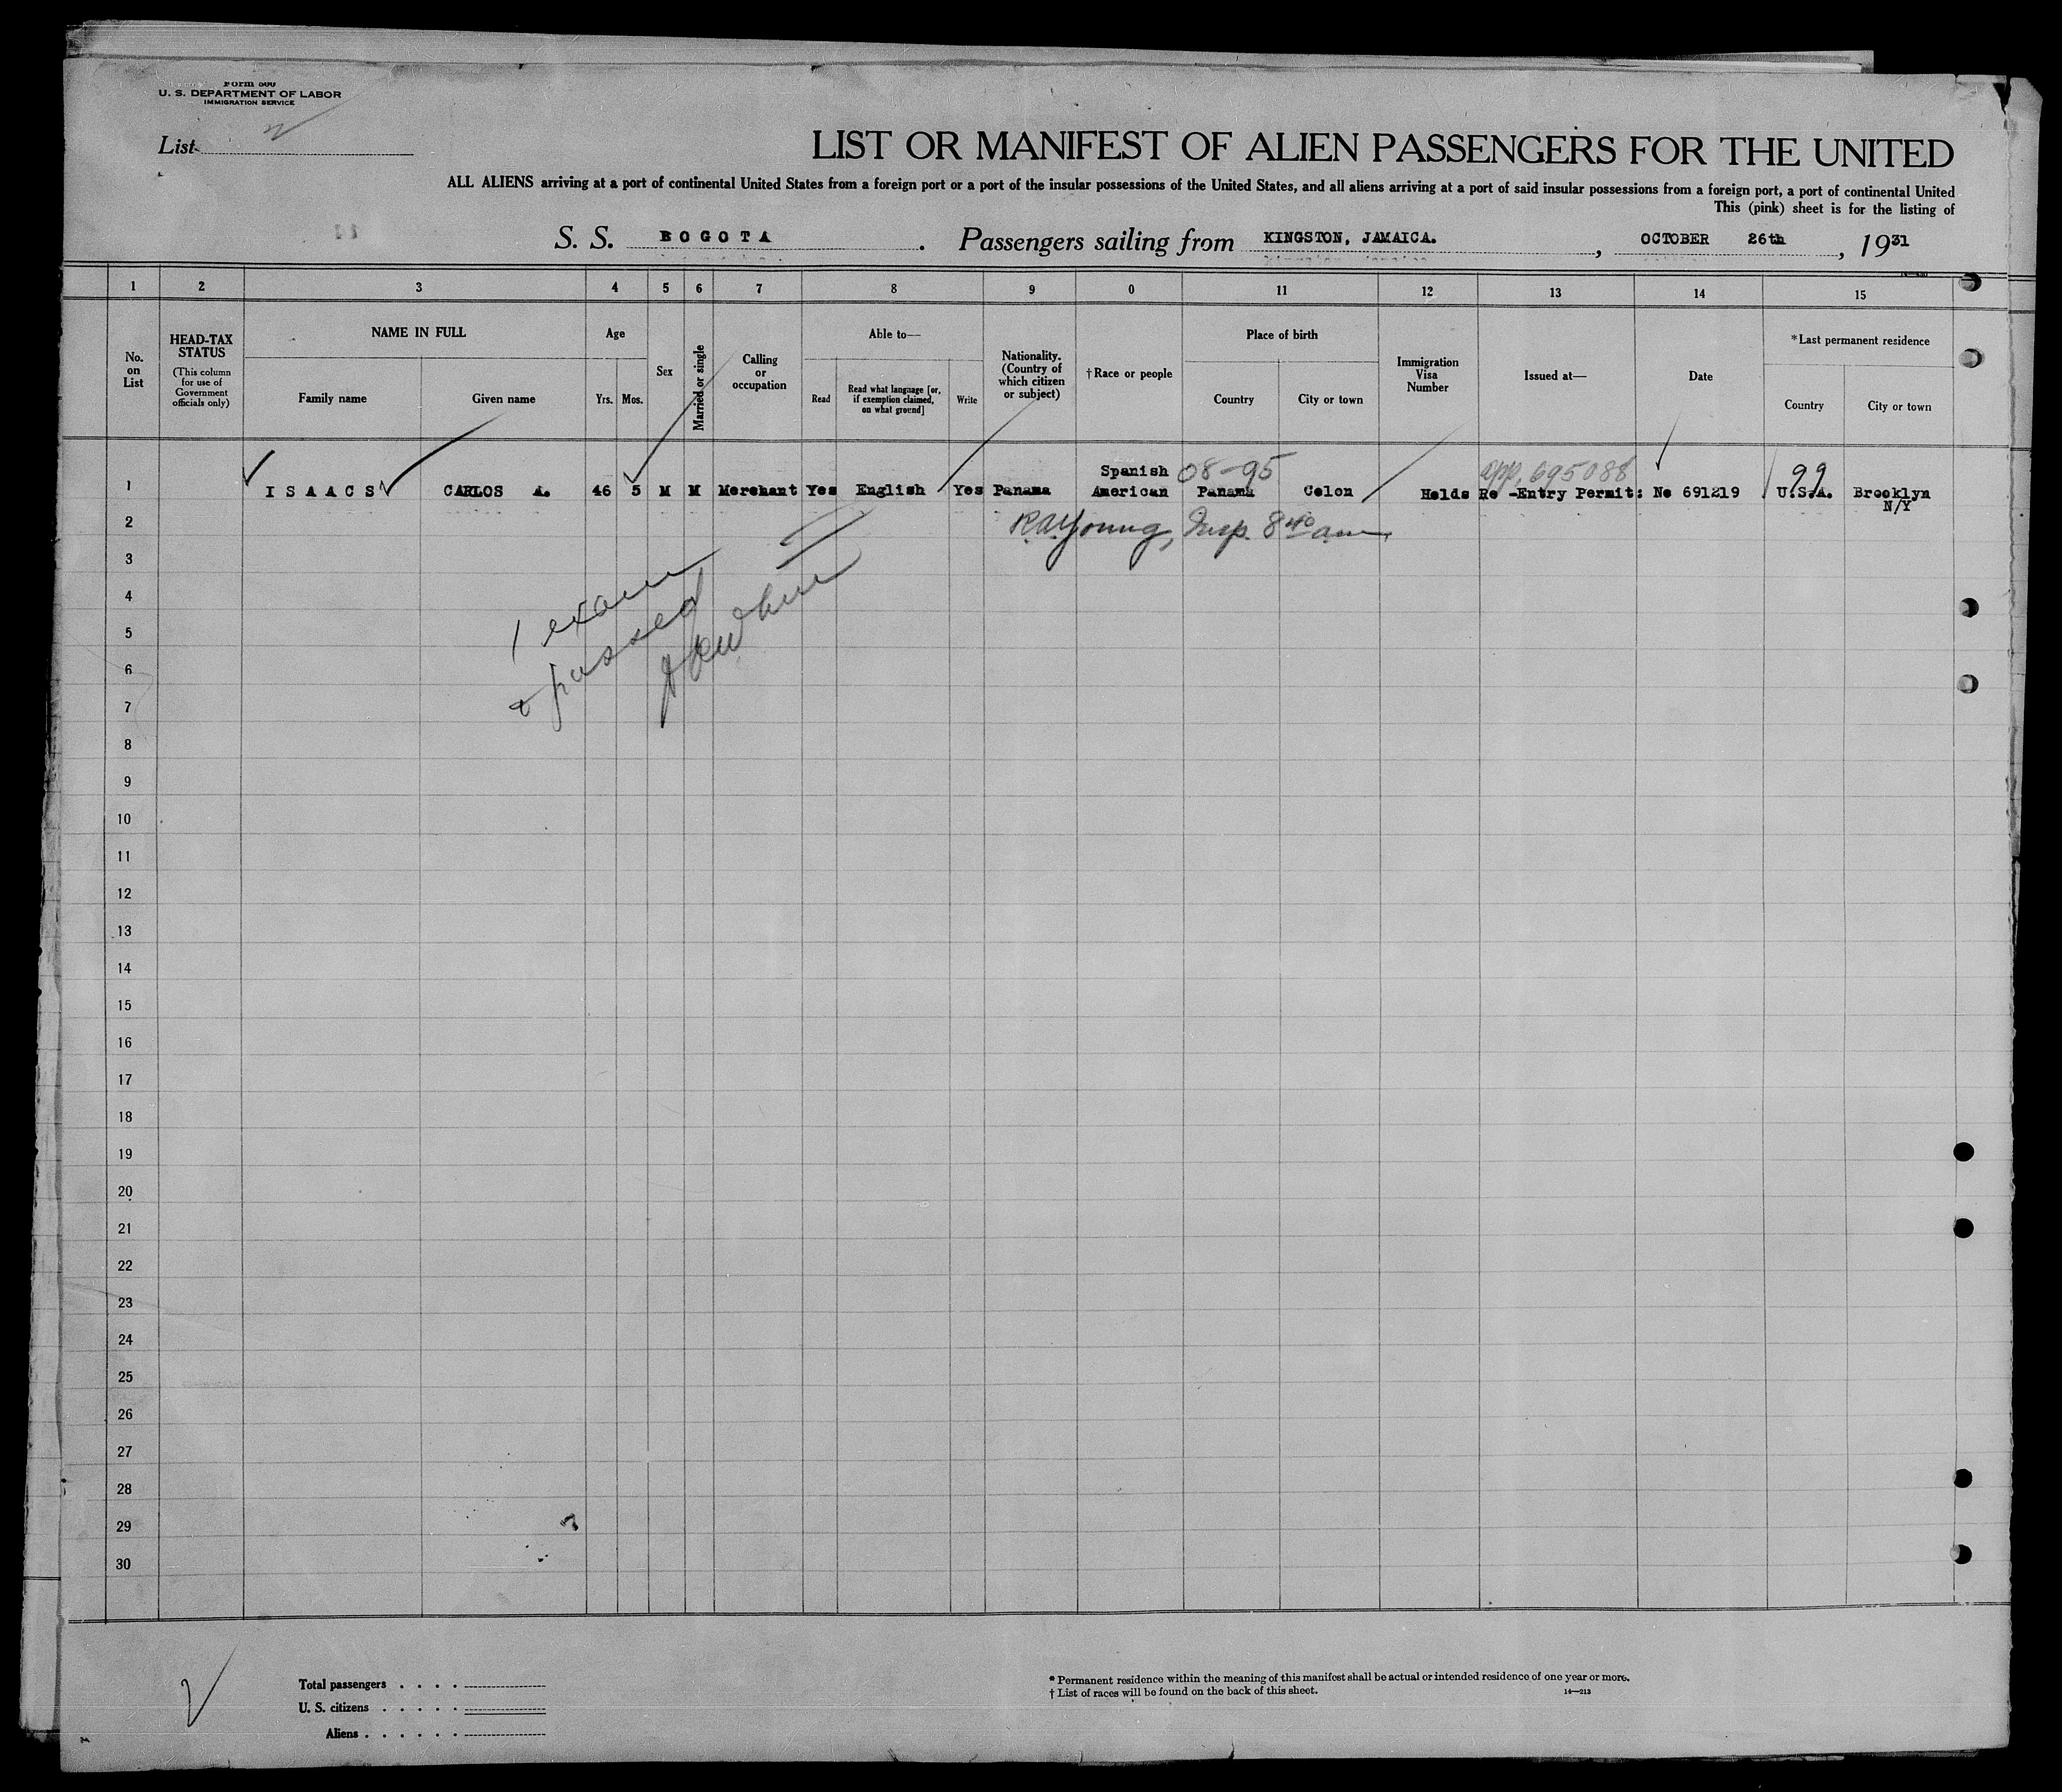 Form 500
U. S. DEPARTMENT OF LABOR
IMMIGRATION SERVICE
List 2
LIST OR MANIFEST OF ALIEN PASSENGERS FOR THE UNITED
ALL ALIENS arriving at a port of continental United States from a foreign port or a port of the insular possessions of the United States, and all aliens arriving at a port of said insular possessions from a foreign port, a port of continental United
This (pink) sheet is for the listing of
S. S. BOGOTA. Passengers sailing from KINGSTON, JAMAICA., OCTOBER 26th, 1931
1 2 3 4 5 6 7 8 9 0 11 12 13 14 15
No. on List
HEAD-TAX STATUS
(This column for use of Government officials only)
NAME IN FULL
Family name
Given name
Age
Yrs.
Mos.
Sex
Married or single
Calling or occupation
Able to—
Read
Read what language [or, if exemption claimed, on what ground]
Write
Nationality. (Country of which citizen or subject)
†Race or people
Place of birth
Country
City or town
Immigration Visa Number
Issued at—
Date
*Last permanent residence
Country
City or town
Spanish 08-95 app. 695088 99
1 ISAACS CARLOS A. 46 5 M M Merchant Yes English Yes Panama American Panama Colon Holds Re-Entry Permit: No 691219 U.S.A. Brooklyn
N/Y
2 R.A. Young, Insp. 8 40 am
3
4
1 exam
5
& passed
6
7
8
9
10
11
12
13
14
15
16
17
18
19
20
21
22
23
24
25
26
27
28
29
30
Total passengers
U. S. citizens
Aliens
* Permanent residence within the meaning of this manifest shall be actual or intended residence of one year or more.
† List of races will be found on the back of this sheet.
14—213